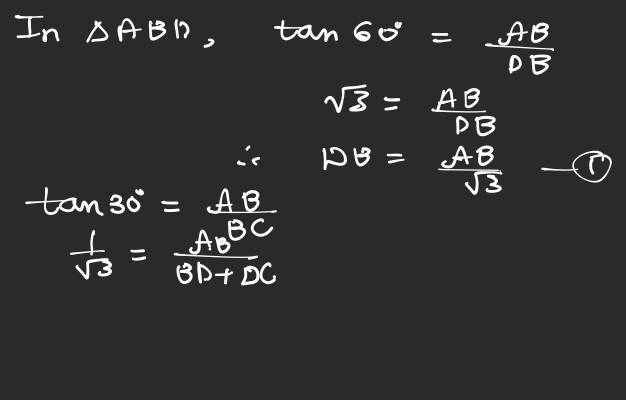 In △ABD, tan 60° = AB/DB
√3 = AB/DB
∴ DB = AB/√3 —①
tan 30° = AB/BC
1/√3 = AB/BD+DC